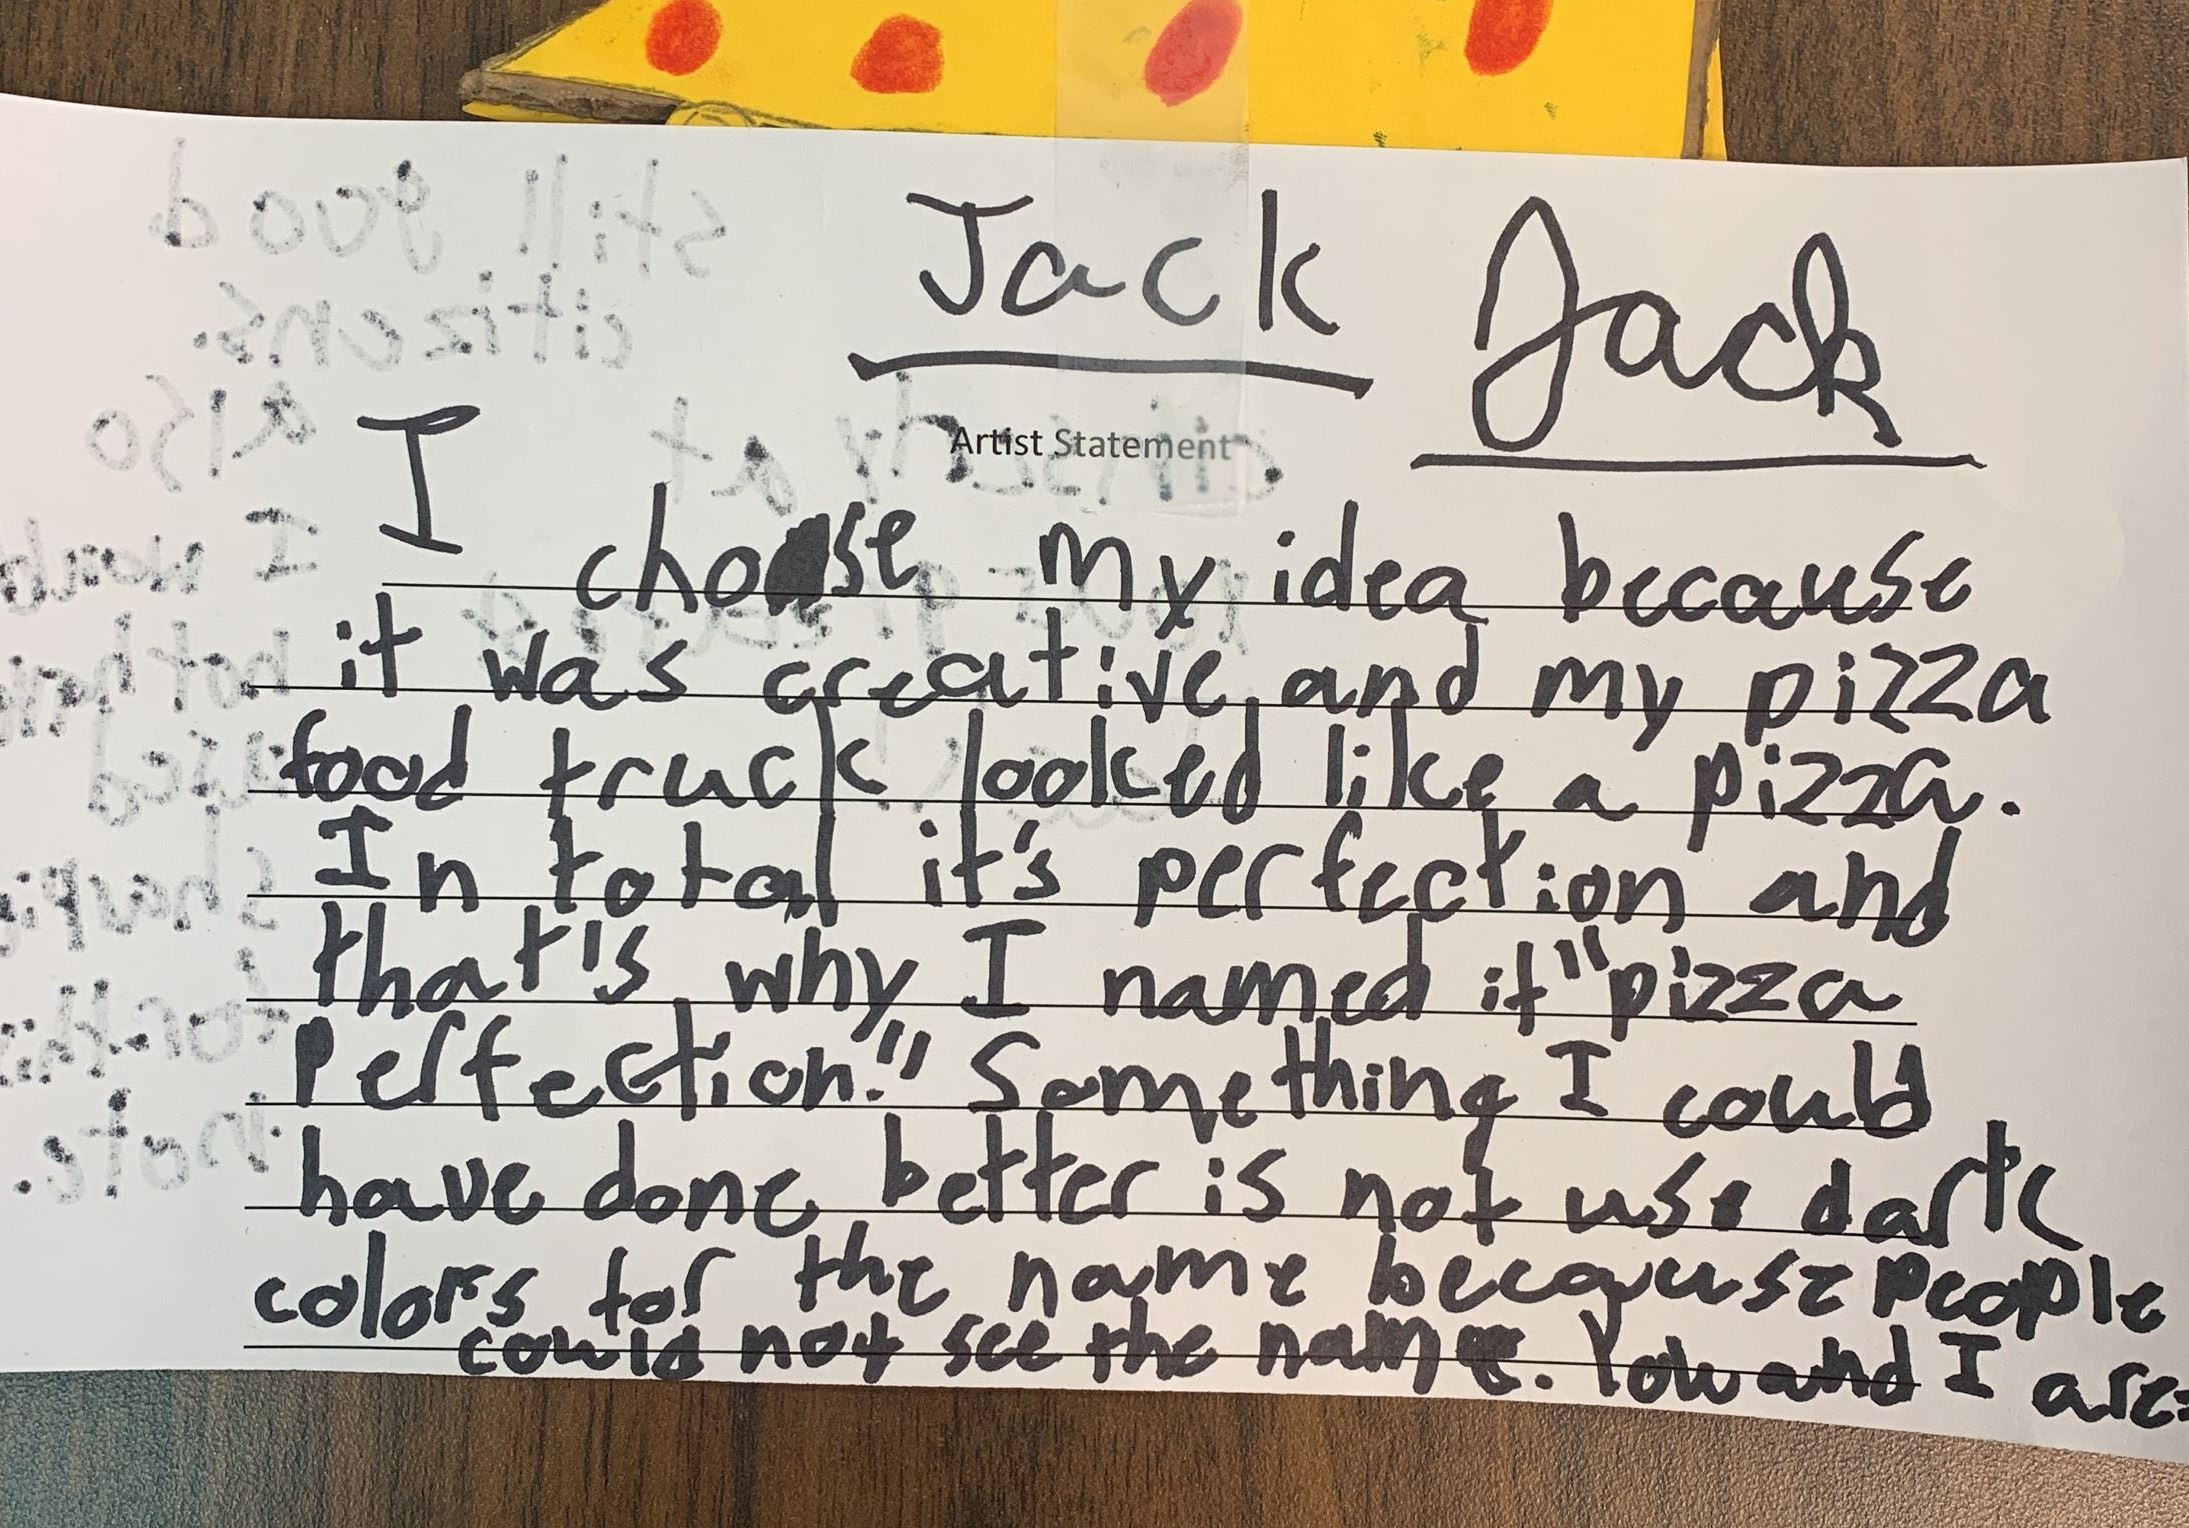 Jack Jack
Artist Statement
I chose my idea because
it was creative and my pizza
food truck looked like a pizza.
In total it's perfection and
that's why I named it "pizza
Perfection." Something I could
have done better is not use dark
colors for the name because people
could not see the name. You and I are
still good
citizens.
also
I
not have
used
for this
note.